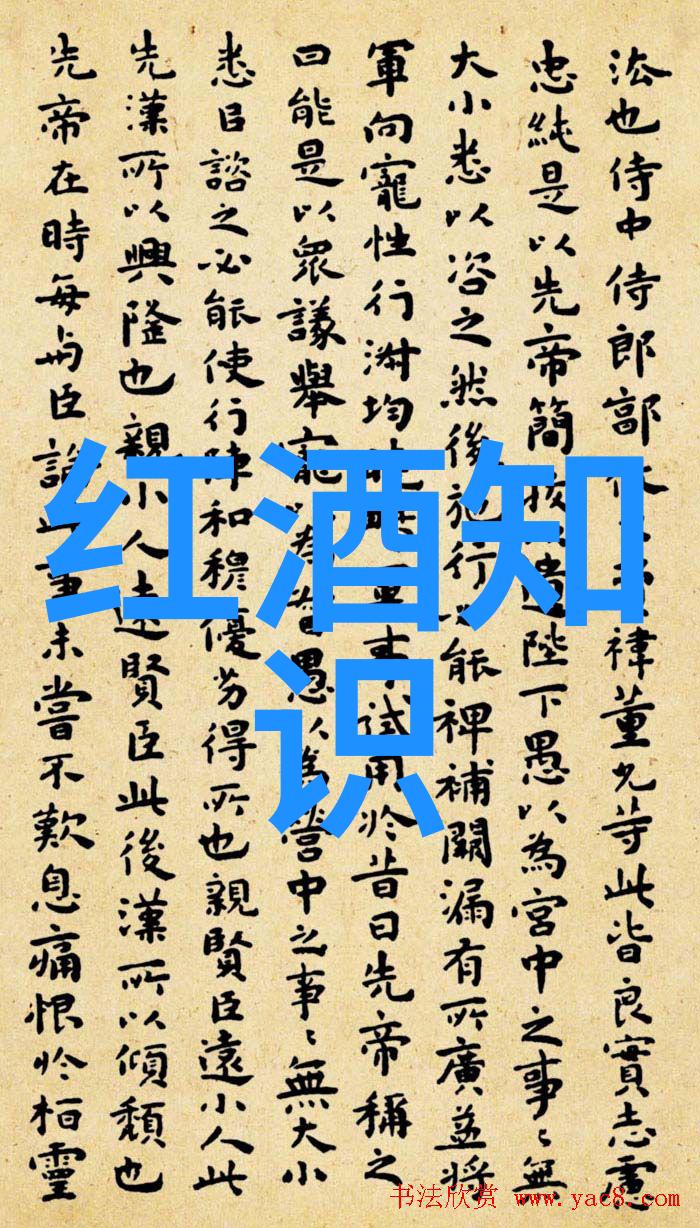 法也侍中侍郎郭攸禕董允等此皆良實志慮
忠純是以先帝簡拔遺陛下愚以為宮中之事〻無
大小悉以咨之然後施行必能裨補闕漏有所廣益將
軍向寵性行淑均事試用於昔日先帝稱之
曰能是以衆議舉寵以為督愚以為營中之事〻無大小
悉以諮之必能使行陣和穆優劣得所也親賢臣遠小人此
先漢所以興隆也親小人遠賢臣此後漢所以傾頹也
先帝在時每与臣論事未嘗不歎息痛恨於桓靈
红酒知
识
书法欣赏 www.yac8.com